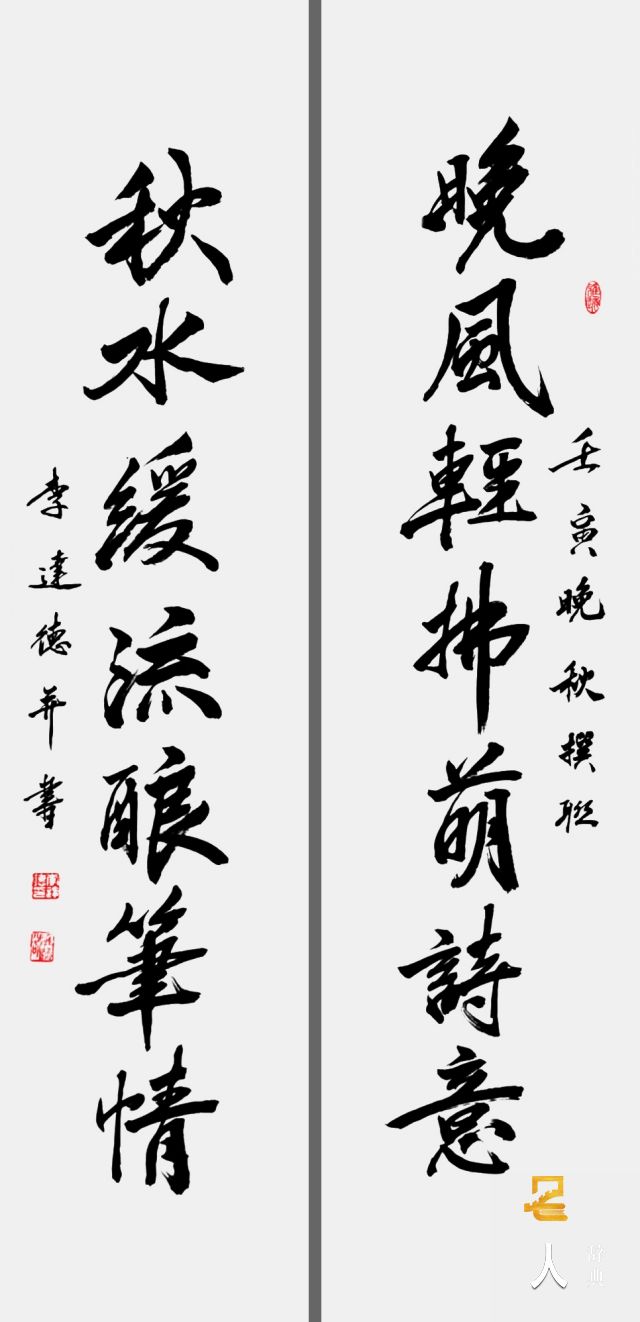 壬寅晚秋撰聯
晚風輕拂萌詩意
秋水緩流釀筆情
李達德并書
名人
辞典